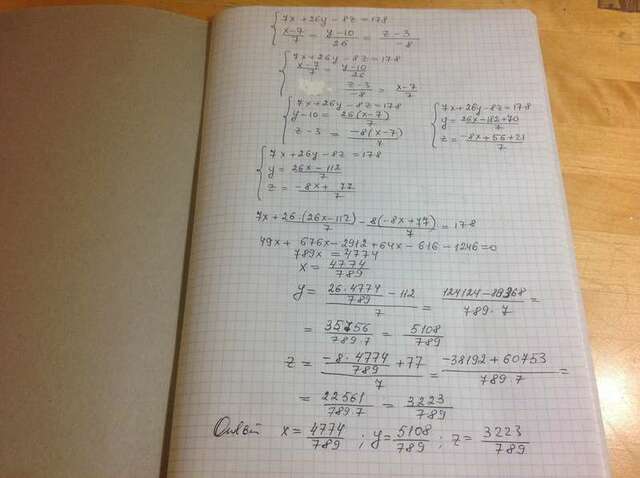 {7x + 26y - 8z = 178
(x-7)/7 = (y-10)/26 = (z-3)/-8
{7x + 26y - 8z = 178
(x-7)/7 = (y-10)/26
(z-3)/-8 = (x-7)/7
{7x + 26y - 8z = 178
y - 10 = 26(x-7)/7
z - 3 = -8(x-7)/7
{7x + 26y - 8z = 178
y = (26x - 182 + 70)/7
z = (-8x + 56 + 21)/7
{7x + 26y - 8z = 178
y = (26x - 112)/7
z = (-8x + 77)/7
7x + 26·(26x - 112)/7 - 8(-8x + 77)/7 = 178
49x + 676x - 2912 + 64x - 616 - 1246 = 0
789x = 4774
x = 4774/789
y = (26·4774/789 - 112)/7 = (124124 - 88368)/(789·7) =
= 35756/(789·7) = 5108/789
z = (-8·4774/789 + 77)/7 = (-38192 + 60753)/(789·7) =
= 22561/(789·7) = 3223/789
Ответ x = 4774/789 ; y = 5108/789 ; z = 3223/789